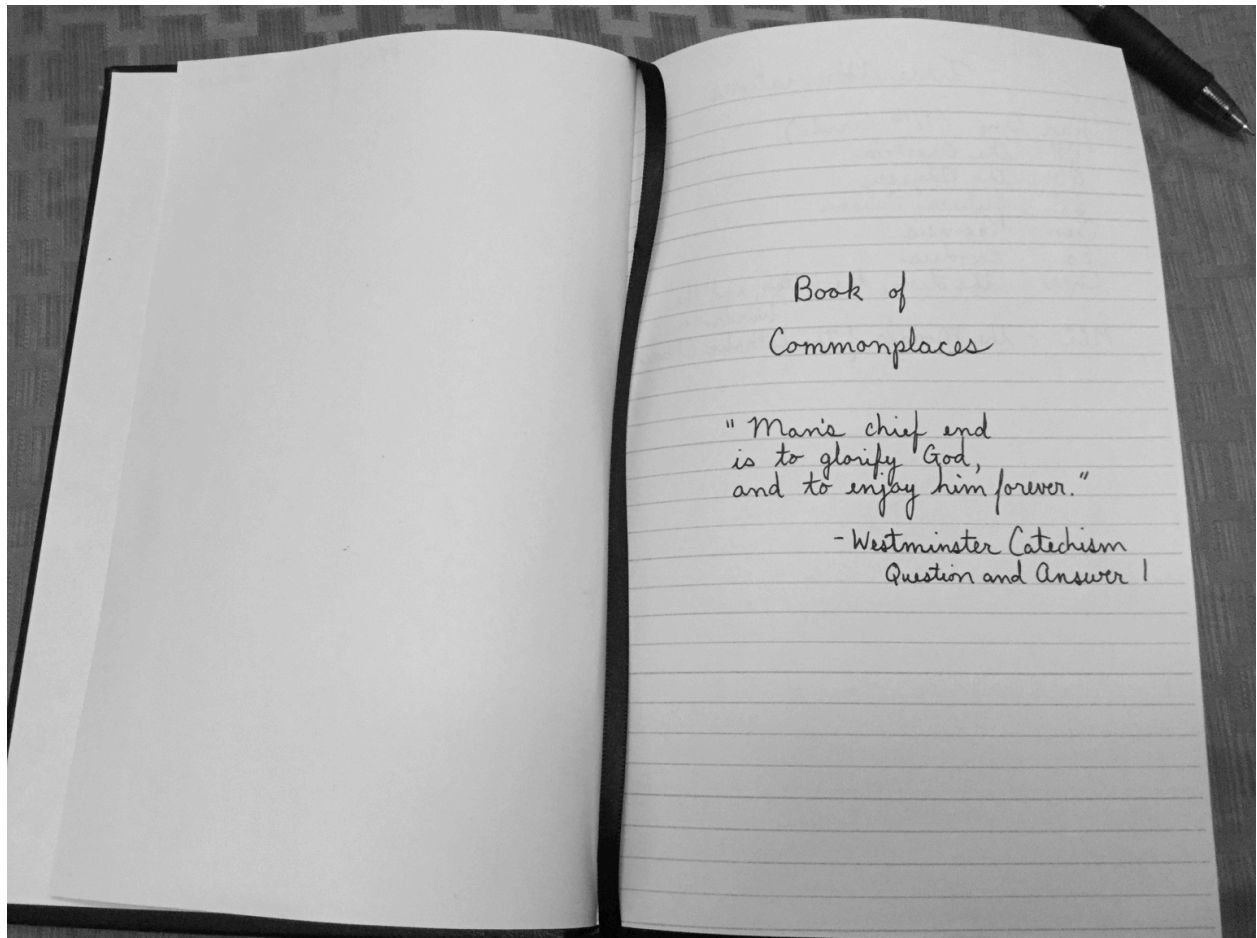 Book of
Commonplaces
"Man's chief end
is to glorify God,
and to enjoy him forever."
-Westminster Catechism
Question and Answer 1